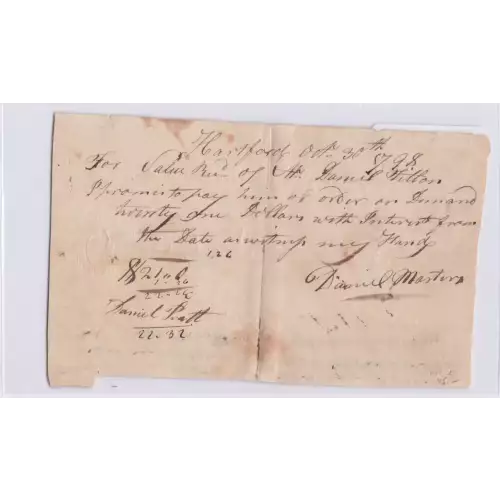 Hartford Octr 30th 1798
For Value Recd of Mr Daniel
I promis to pay him or order on Demand
twenty one Dollars with Interest from
the Date as witness my Hand
1,26
Daniel Marten
$21-0
1-26
22-26
Daniel Pratt
22-32